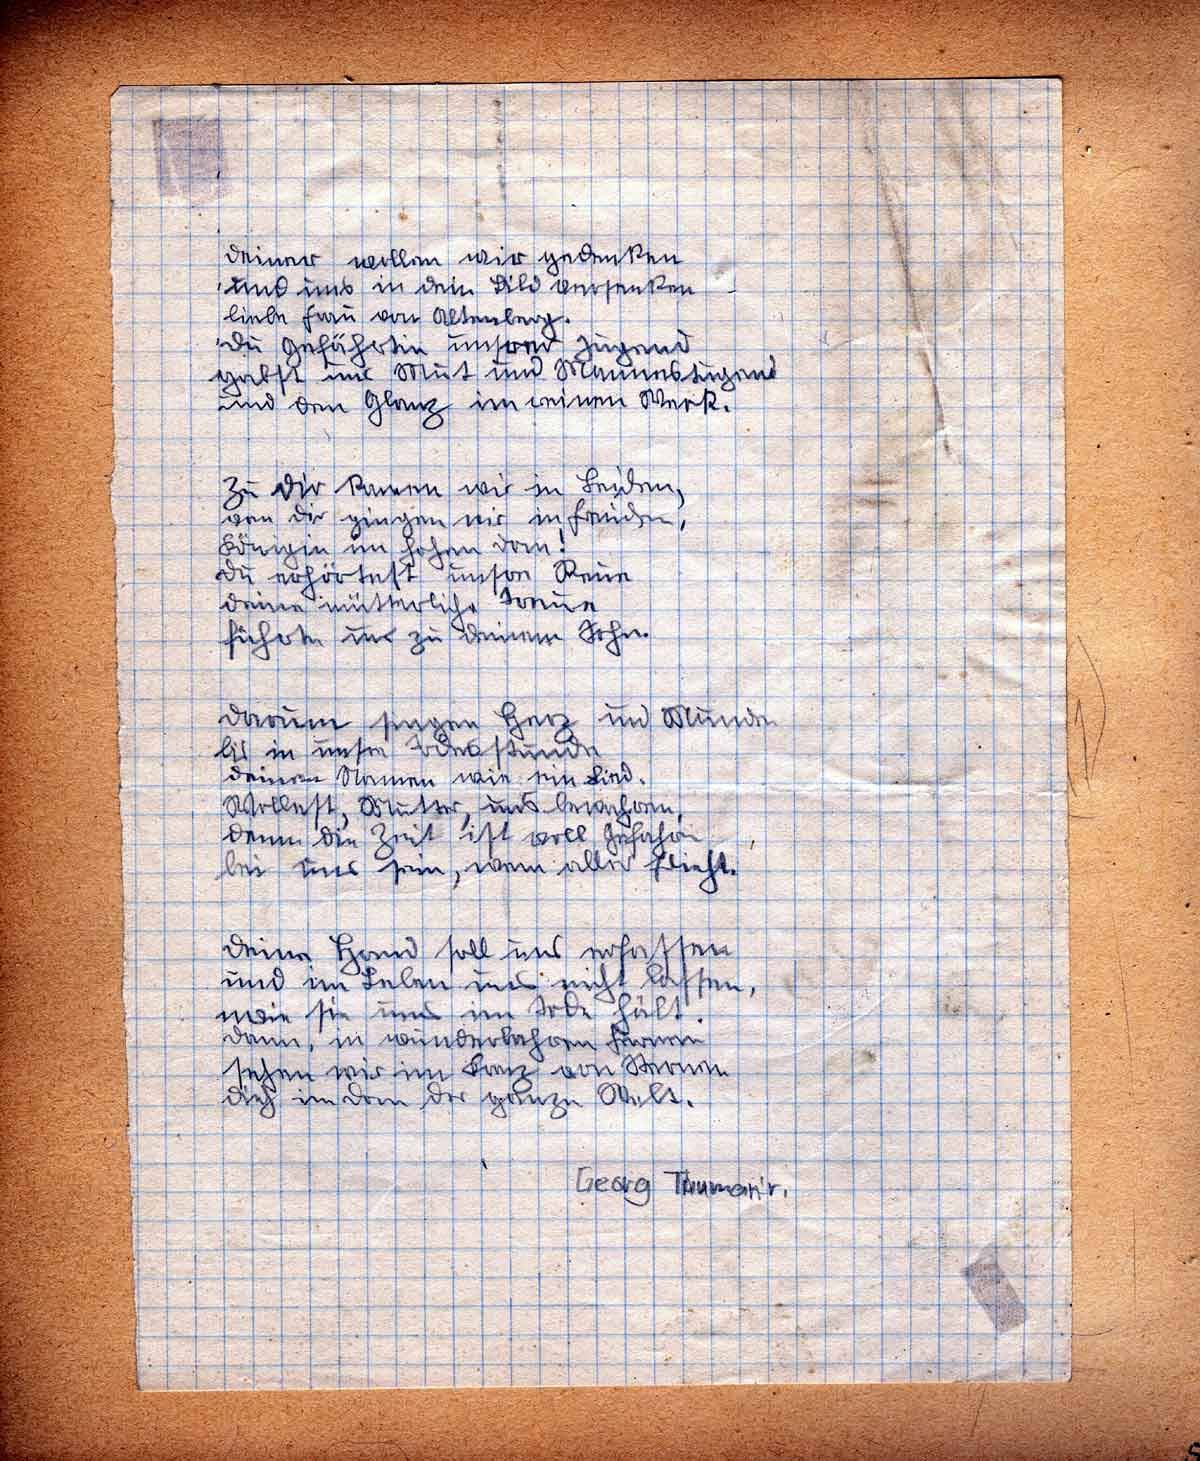 Deiner wollen wir gedenken
und uns in dein Bild versenken
liebe Frau von Altenberg.
Du Gefährtin unsrer Jugend
gabst uns Mut und Mannestugend
und den Glanz im reinen Werk.
Zu dir kamen wir in Leiden,
von dir gingen wir in Freuden,
Königin im hohen Dom!
Du erhörtest unsre Reue
deine mütterliche Treue
führte uns zu deinem Sohn.
Darum singen Herz und Munde
bis in unsre Todesstunde
deinen Namen wie ein Lied.
Wollest, Mutter, uns bewahren,
denn die Zeit ist voll Gefahren
bei uns sein, wenn alles flieht.
Deine Hand soll uns erfassen
und im Leben uns nicht lassen,
wie sie uns im Tode hält.
Dann, in wunderbahren Fernen
sehen wir im Kranz von Sternen
dich im Dom der ganzen Welt.
Georg Thurmair.